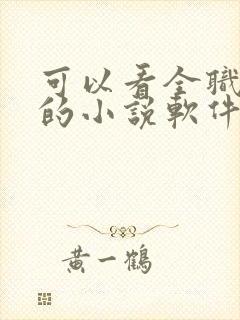 可以看全職
的小說軟件
黃一鶴